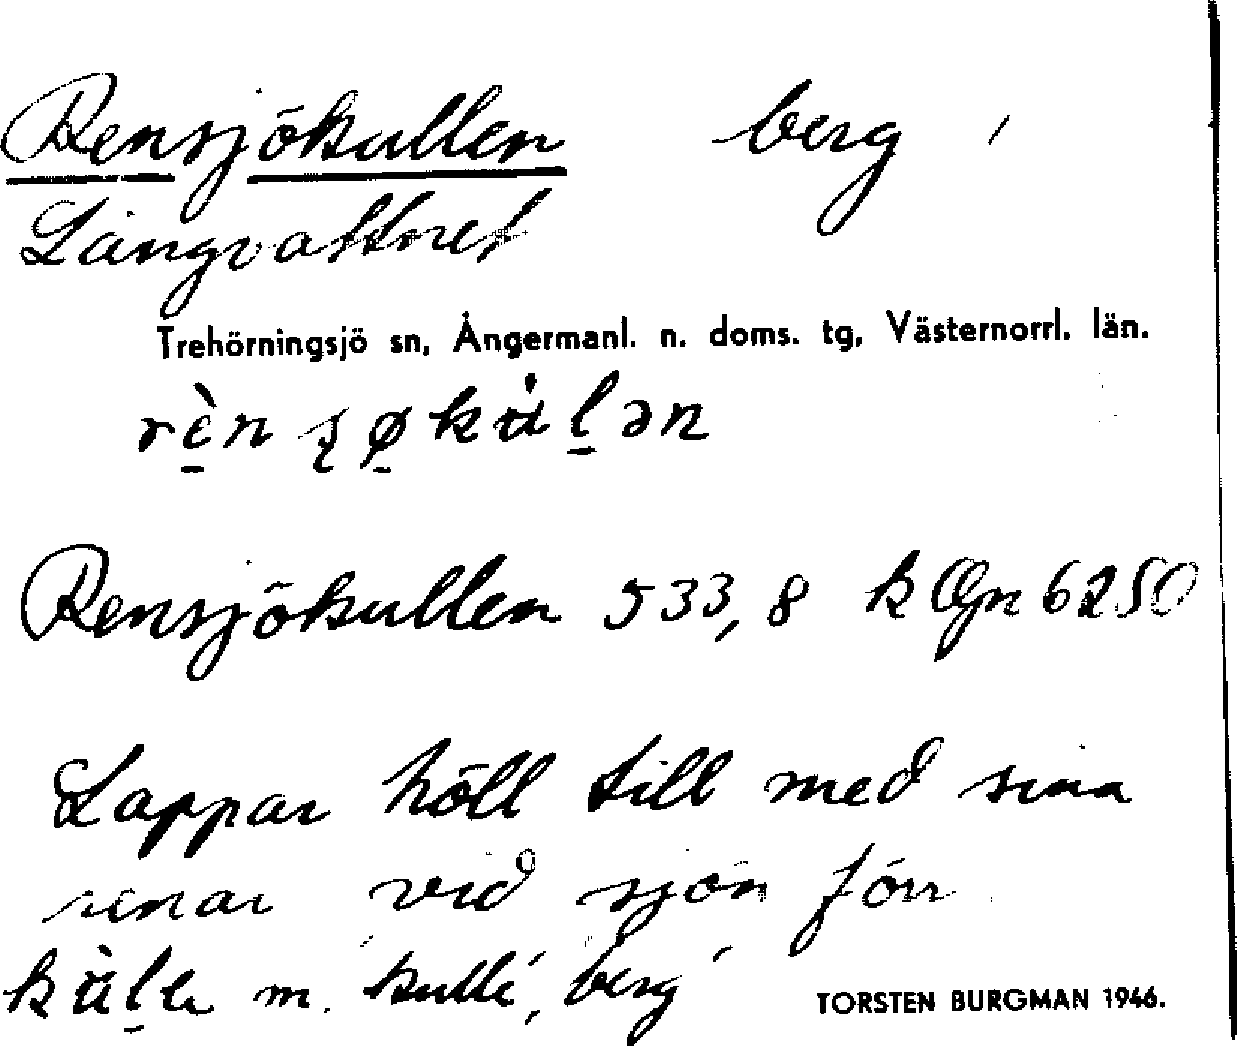 Rensjökullen berg
Långvattnet
Trehörningsjö sn, Ångermanl. n. doms. tg, Västernorrl. län.
Rensjökullen 533,8 k Ögn 6250
Lappar höll till med sina
renar vid sjön förr
m. 'kulle', 'berg'
TORSTEN BURGMAN 1946.